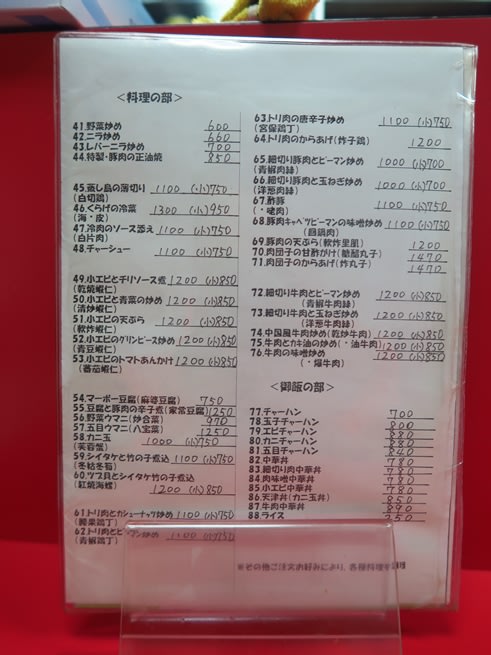 <料理の部>
41.野菜炒め 600
42.ニラ炒め 660
43.レバーニラ炒め 700
44.特製・豚肉の正油焼 850
45.蒸し鳥の薄切り 1100 (小)750
(白切鶏)
46.くらげの冷菜 1300 (小)950
(海・皮)
47.冷肉のソース添え 1100 (小)750
(白片肉)
48.チャーシュー 1100 (小)750
49.小エビとチリソース煮 1200 (小)850
(乾焼蝦仁)
50.小エビと青菜の炒め 1200 (小)850
(清炒蝦仁)
51.小エビの天ぷら 1200 (小)850
(軟炸蝦仁)
52.小エビのグリンピース炒め 1200 (小)850
(青豆蝦仁)
53.小エビのトマトあんかけ 1200 (小)850
(蕃茄蝦仁)
54.マーボー豆腐(麻婆豆腐) 750
55.豆腐と豚肉の辛子煮(家常豆腐) 1250
56.野菜ウマニ(炒合菜) 970
57.五目ウマニ(八宝菜) 1250
58.カニ玉 1000 (小)750
(芙蓉蟹)
59.シイタケと竹の子煮込 1100 (小)750
(冬菇冬筍)
60.ツブ貝とシイタケの子煮込
(紅焼海螺) 1200 (小)850
61.トリ肉とカシューナッツ炒め 1100 (小)750
(腰果鶏丁)
62.トリ肉とピーマン炒め 1100 (小)750
(青椒鶏丁)
63.トリ肉の唐辛子炒め 1100 (小)750
(宮保鶏丁)
64.トリ肉のからあげ(炸子鶏) 1200
65.細切り豚肉とピーマン炒め 1000 (小)700
(青椒肉絲)
66.細切り豚肉と玉ねぎ炒め 1000 (小)700
(洋葱肉絲)
67.酢豚 1100 (小)750
(・咾肉)
68.豚肉キャベツピーマンの味噌炒め 1100 (小)750
(回鍋肉)
69.豚肉の天ぷら(軟炸里肌) 1200
70.肉団子の甘酢がけ(糖醋丸子) 1470
71.肉団子のからあげ(炸丸子) 1470
72.細切り牛肉とピーマン炒め 1200 (小)850
(青椒牛肉絲)
73.細切り牛肉と玉ねぎ炒め 1200 (小)850
(洋葱牛肉絲)
74.中国風牛肉炒め(乾炒牛肉) 1200 (小)850
75.牛肉とカキ油の炒め(・油牛肉) 1200 (小)850
76.牛肉の味噌炒め 1200 (小)850
(・爆牛肉)
<御飯の部>
77.チャーハン 700
78.玉子チャーハン 800
79.エビチャーハン 880
80.カニチャーハン 880
81.五目チャーハン 840
82.中華丼 780
83.細切り肉中華丼 780
84.肉味噌中華丼 780
85.小エビ中華丼 780
86.天津丼(カニ玉丼) 850
87.牛肉中華丼 890
88.ライス 250
※その他ご注文お好みにより、各種料理を